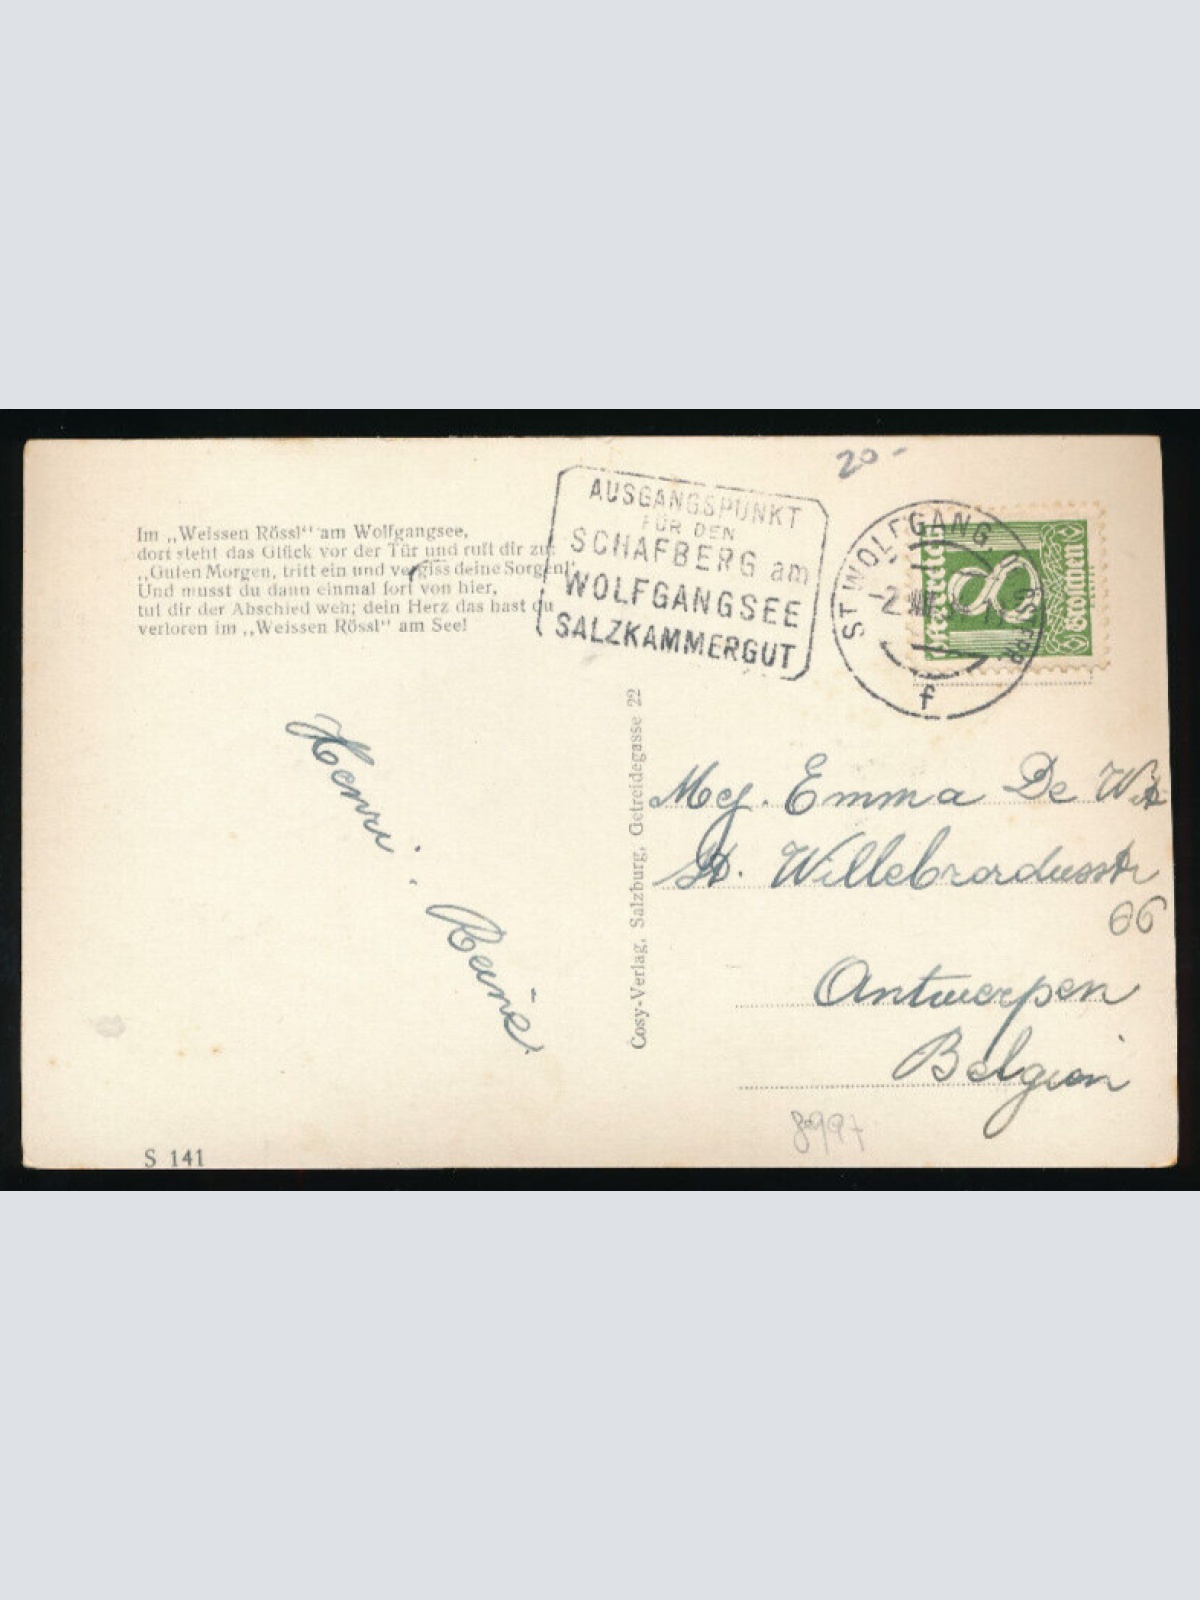 20-
AUSGANGSPUNKT
FÜR DEN
SCHAFBERG am
WOLFGANGSEE
SALZKAMMERGUT
ST WOLFGANG.
-2
f
8
Groschen
Im „Weissen Rössl“ am Wolfgangsee,
dort steht das Glück vor der Tür und ruft dir zu:
„Guten Morgen, tritt ein und vergiss deine Sorgen!“
Und musst du dann einmal fort von hier,
tut dir der Abschied weh; dein Herz das hast du
verloren im „Weissen Rössl“ am See!
Henri.
Cosy-Verlag, Salzburg, Getreidegasse 22
Mej. Emma De Wit
St. Willebrordusstr
66
Antwerpen
Belgien
8997
S 141